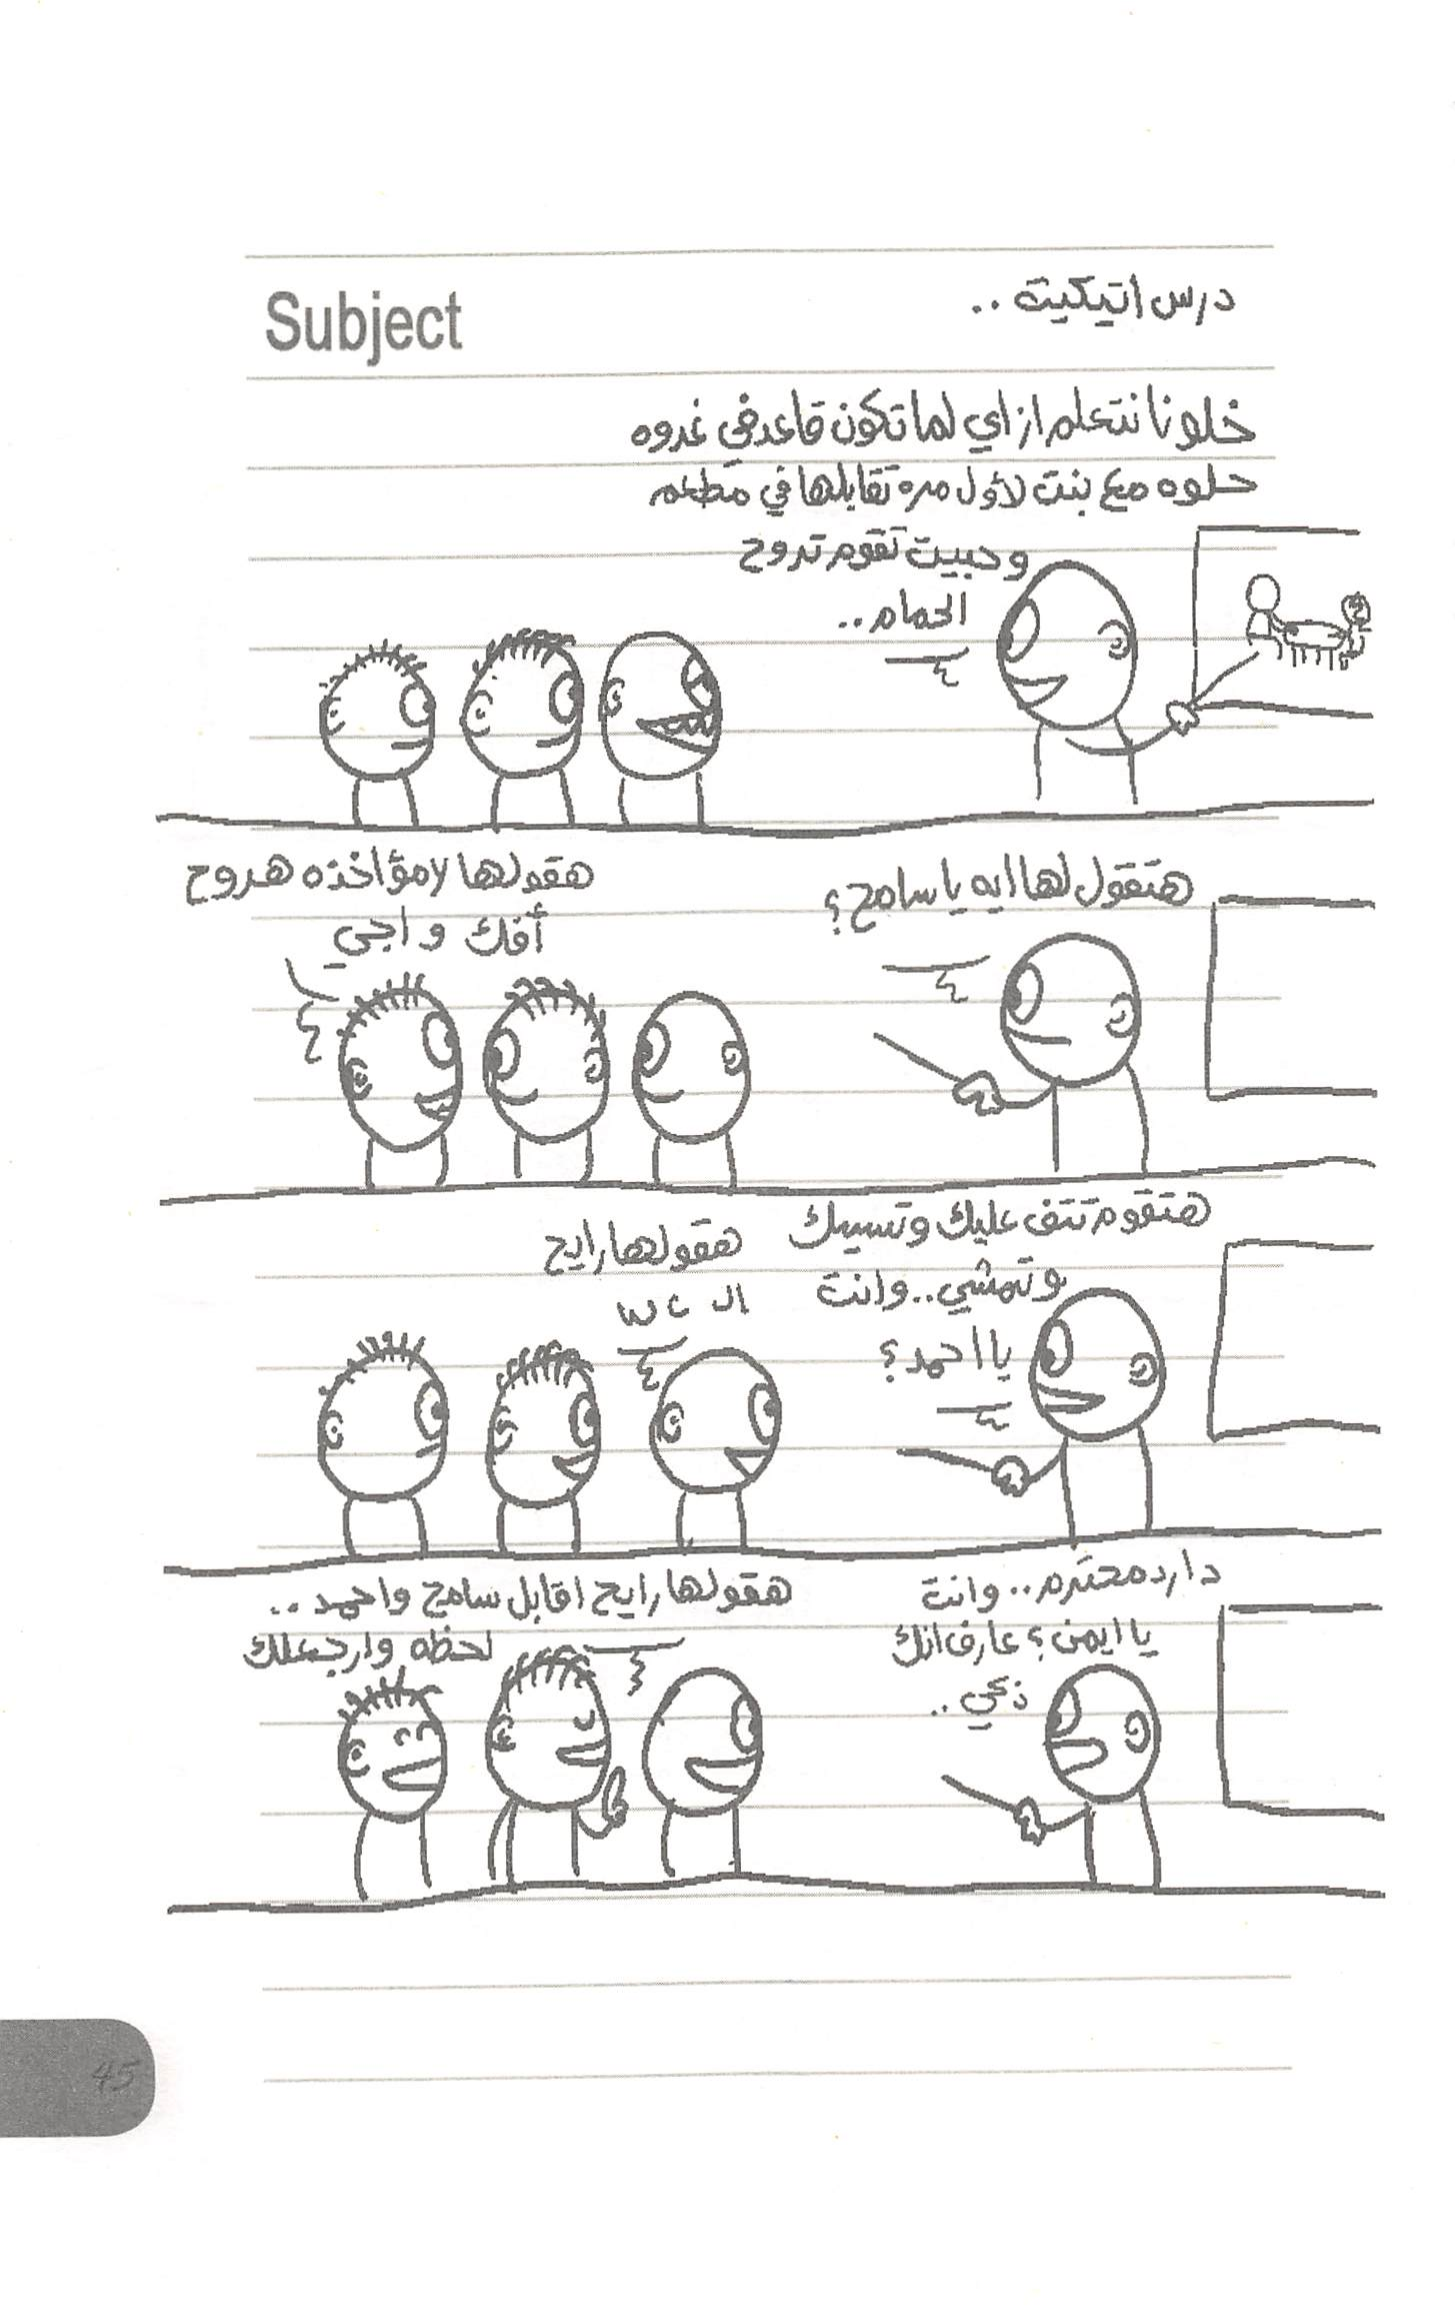 Subject
درس اتيكيت ..
خلونا نتعلم ازاي لما تكون قاعد في غدوه
حلوه مع بنت لأول مره تقابلها في مطعم
وحبيت تقوم تروح
الحمام ..
هتقول لها ايه يا سامح؟
هقولها لامؤاخذه هروح
أفك واجي
هتقوم تتف عليك وتسيبك
وتمشي .. وانت
يا احمد؟
هقولها رايح
ال WC
دا رد محترم .. وانت
يا ايمن؟ عارف انك
ذكي ..
هقولها رايح اقابل سامح واحمد ..
لحظه وارجعلك
45